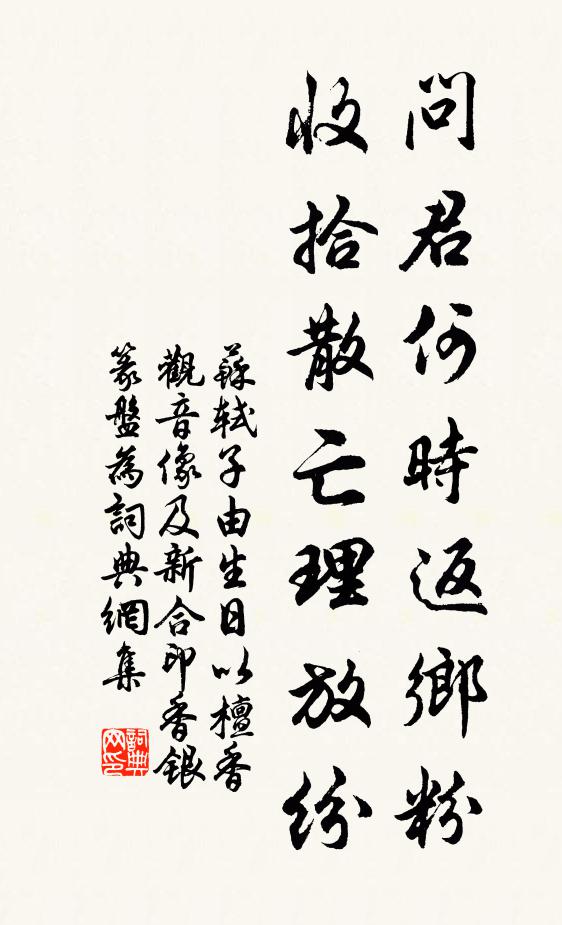 問君何時返鄉粉
收拾散亡理放紛
蘇軾子由生日以檀香
觀音像及新合印香銀
篆盤為詞典網集
詞典
网印